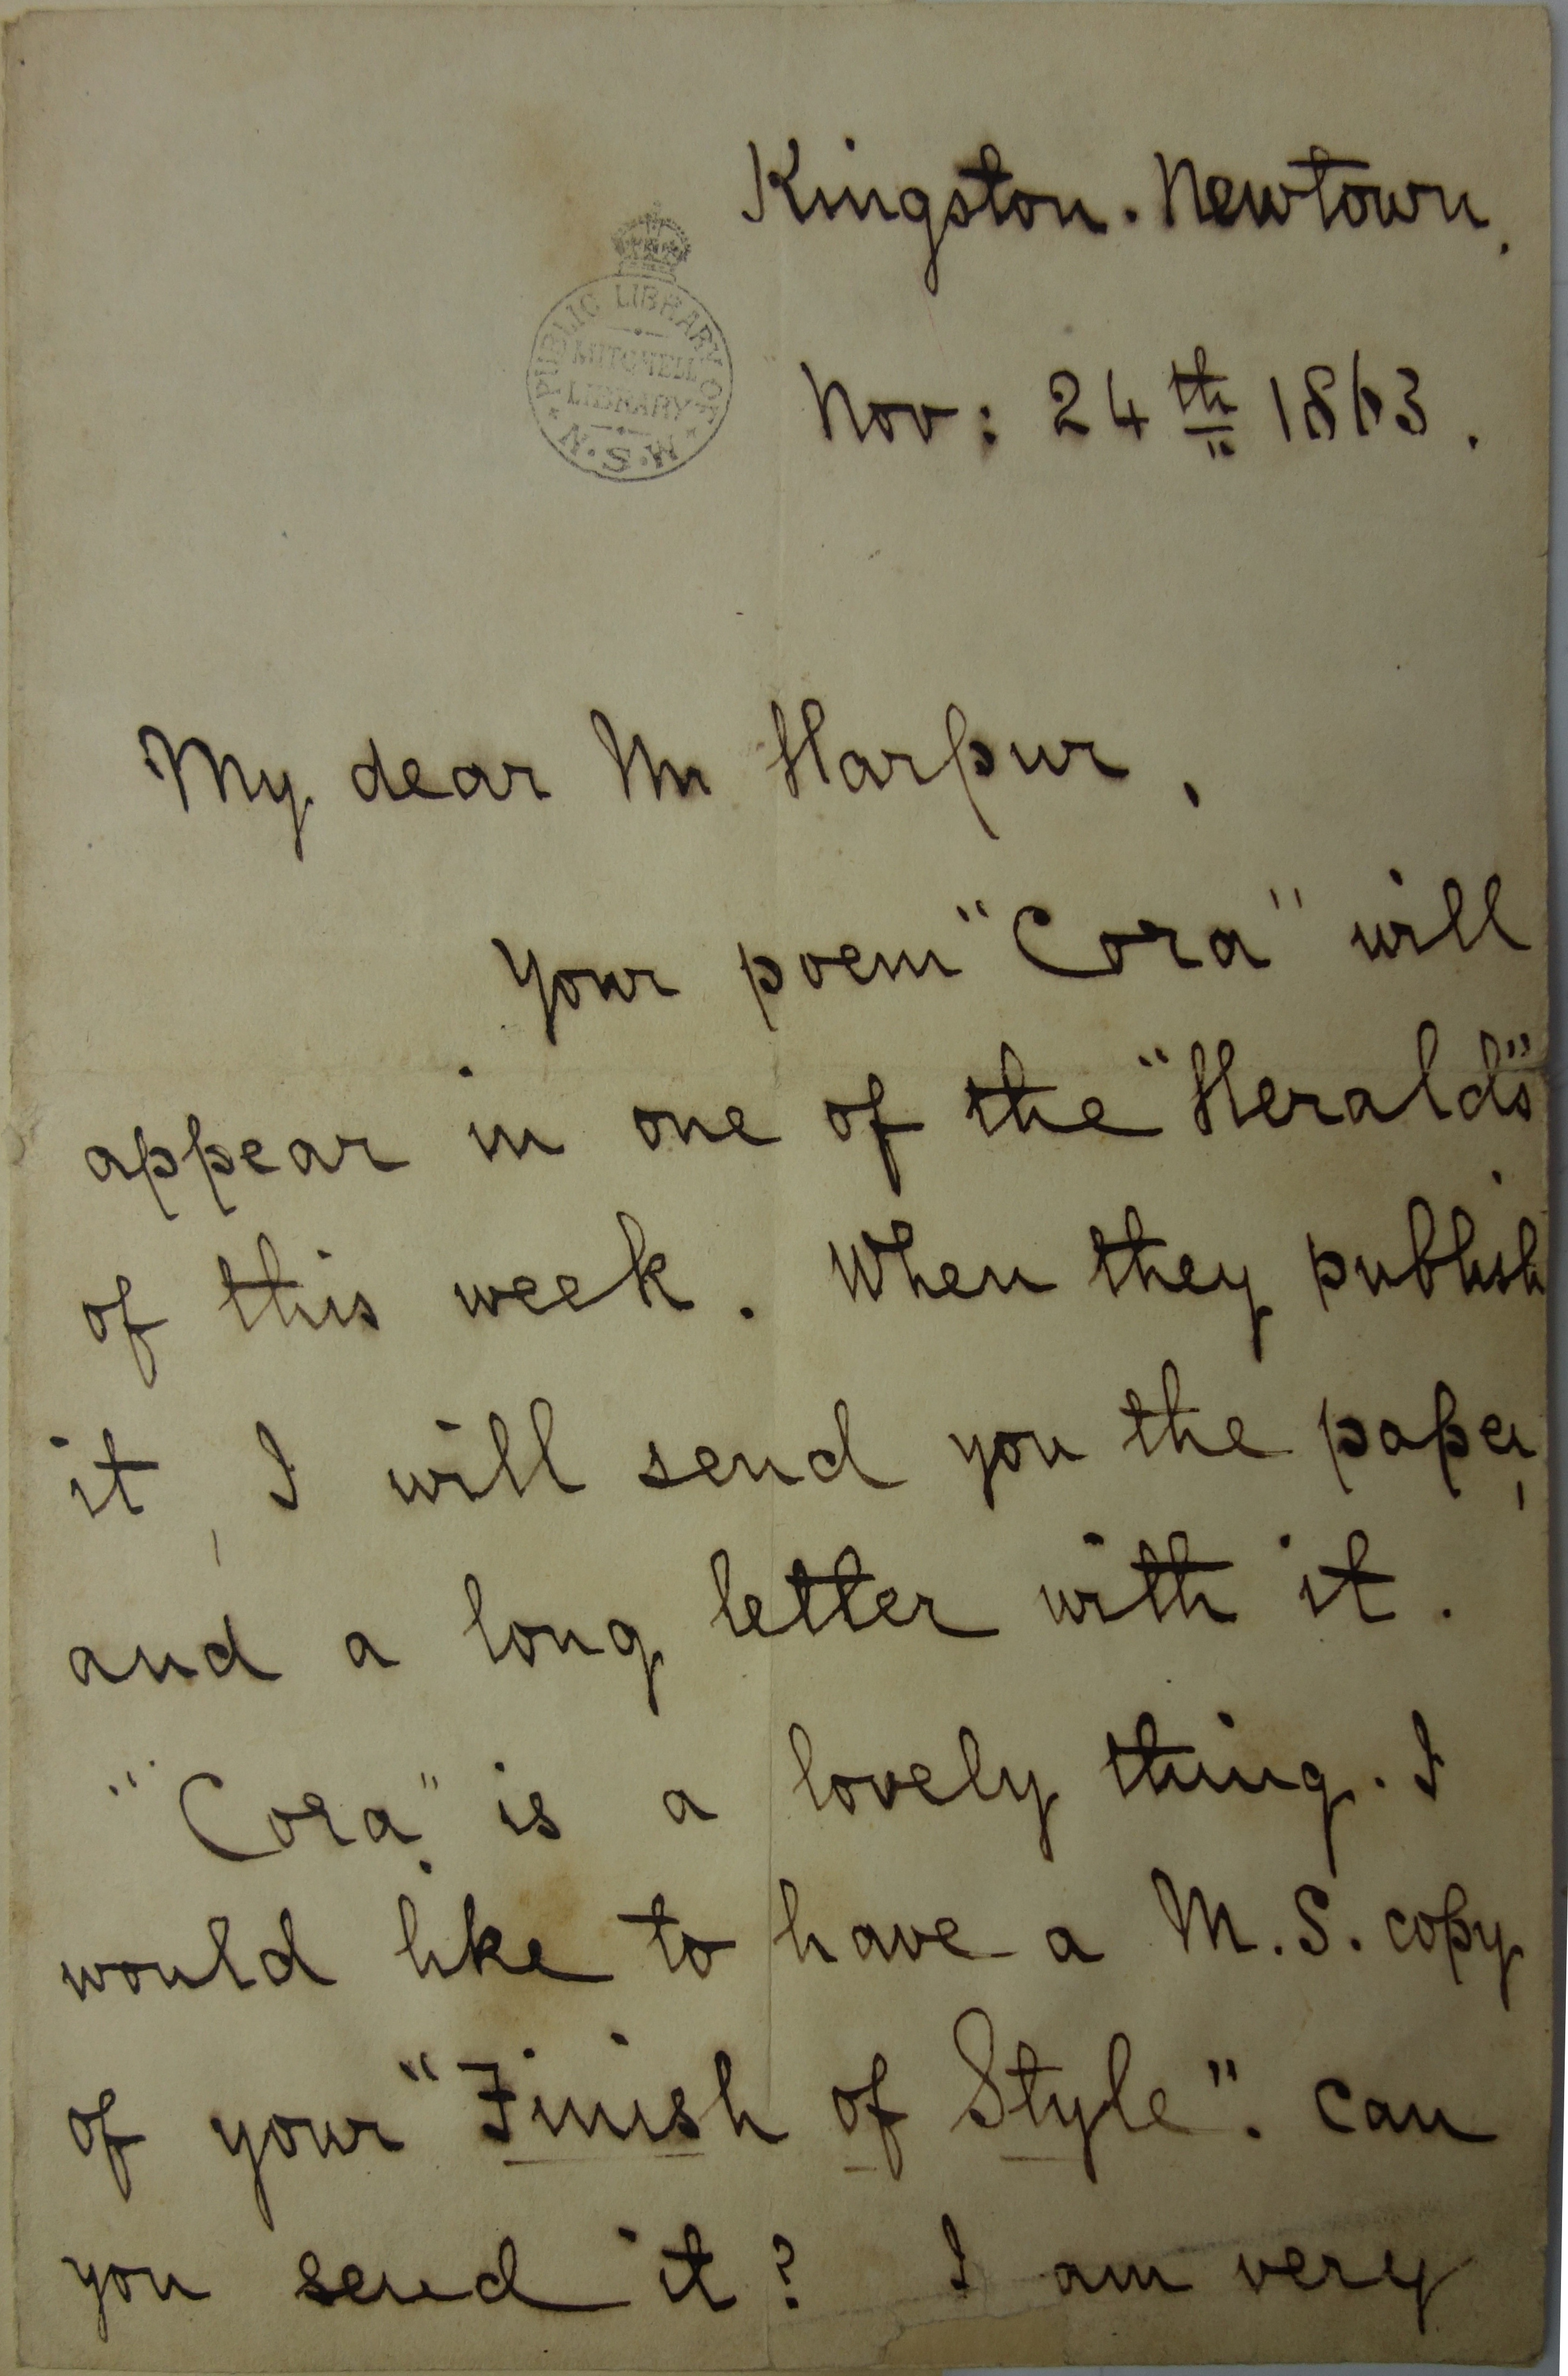 Kingston. Newtown.
PUBLIC LIBRARY OF
MITCHELL
LIBRARY
N.S.W
Nov: 24th 1863.
My dear Mr Harpur,
Your poem "Cora" will
appear in one of the "Heralds"
of this week. When they publish
it, I will send you the paper,
and a long letter with it.
"Cora" is a lovely thing. I
would like to have a M.S. copy
of your "Finish of Style". Can
you send it? I am very